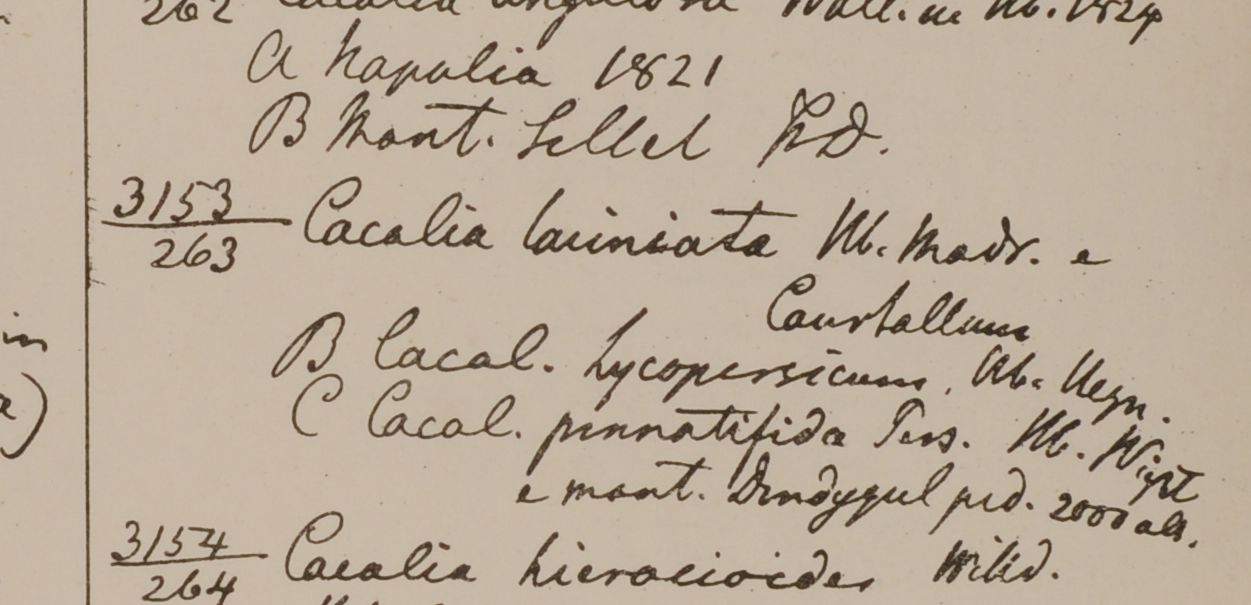 262 Cacalia angulosa Wall. in Hb. 1824
A Napalia 1821
B Mont. Sillet F.D.
3153
263 Cacalia laciniata Hb. Madr. e
Courtallum
B Cacal. Lycopersicum. Hb. Heyn.
C Cacal. pinnatifida Pers. Hb. Wight
e mont. Dindygul ped. 2000 alt.
in
e)
3154
264 Cacalia hieracioides Willd.